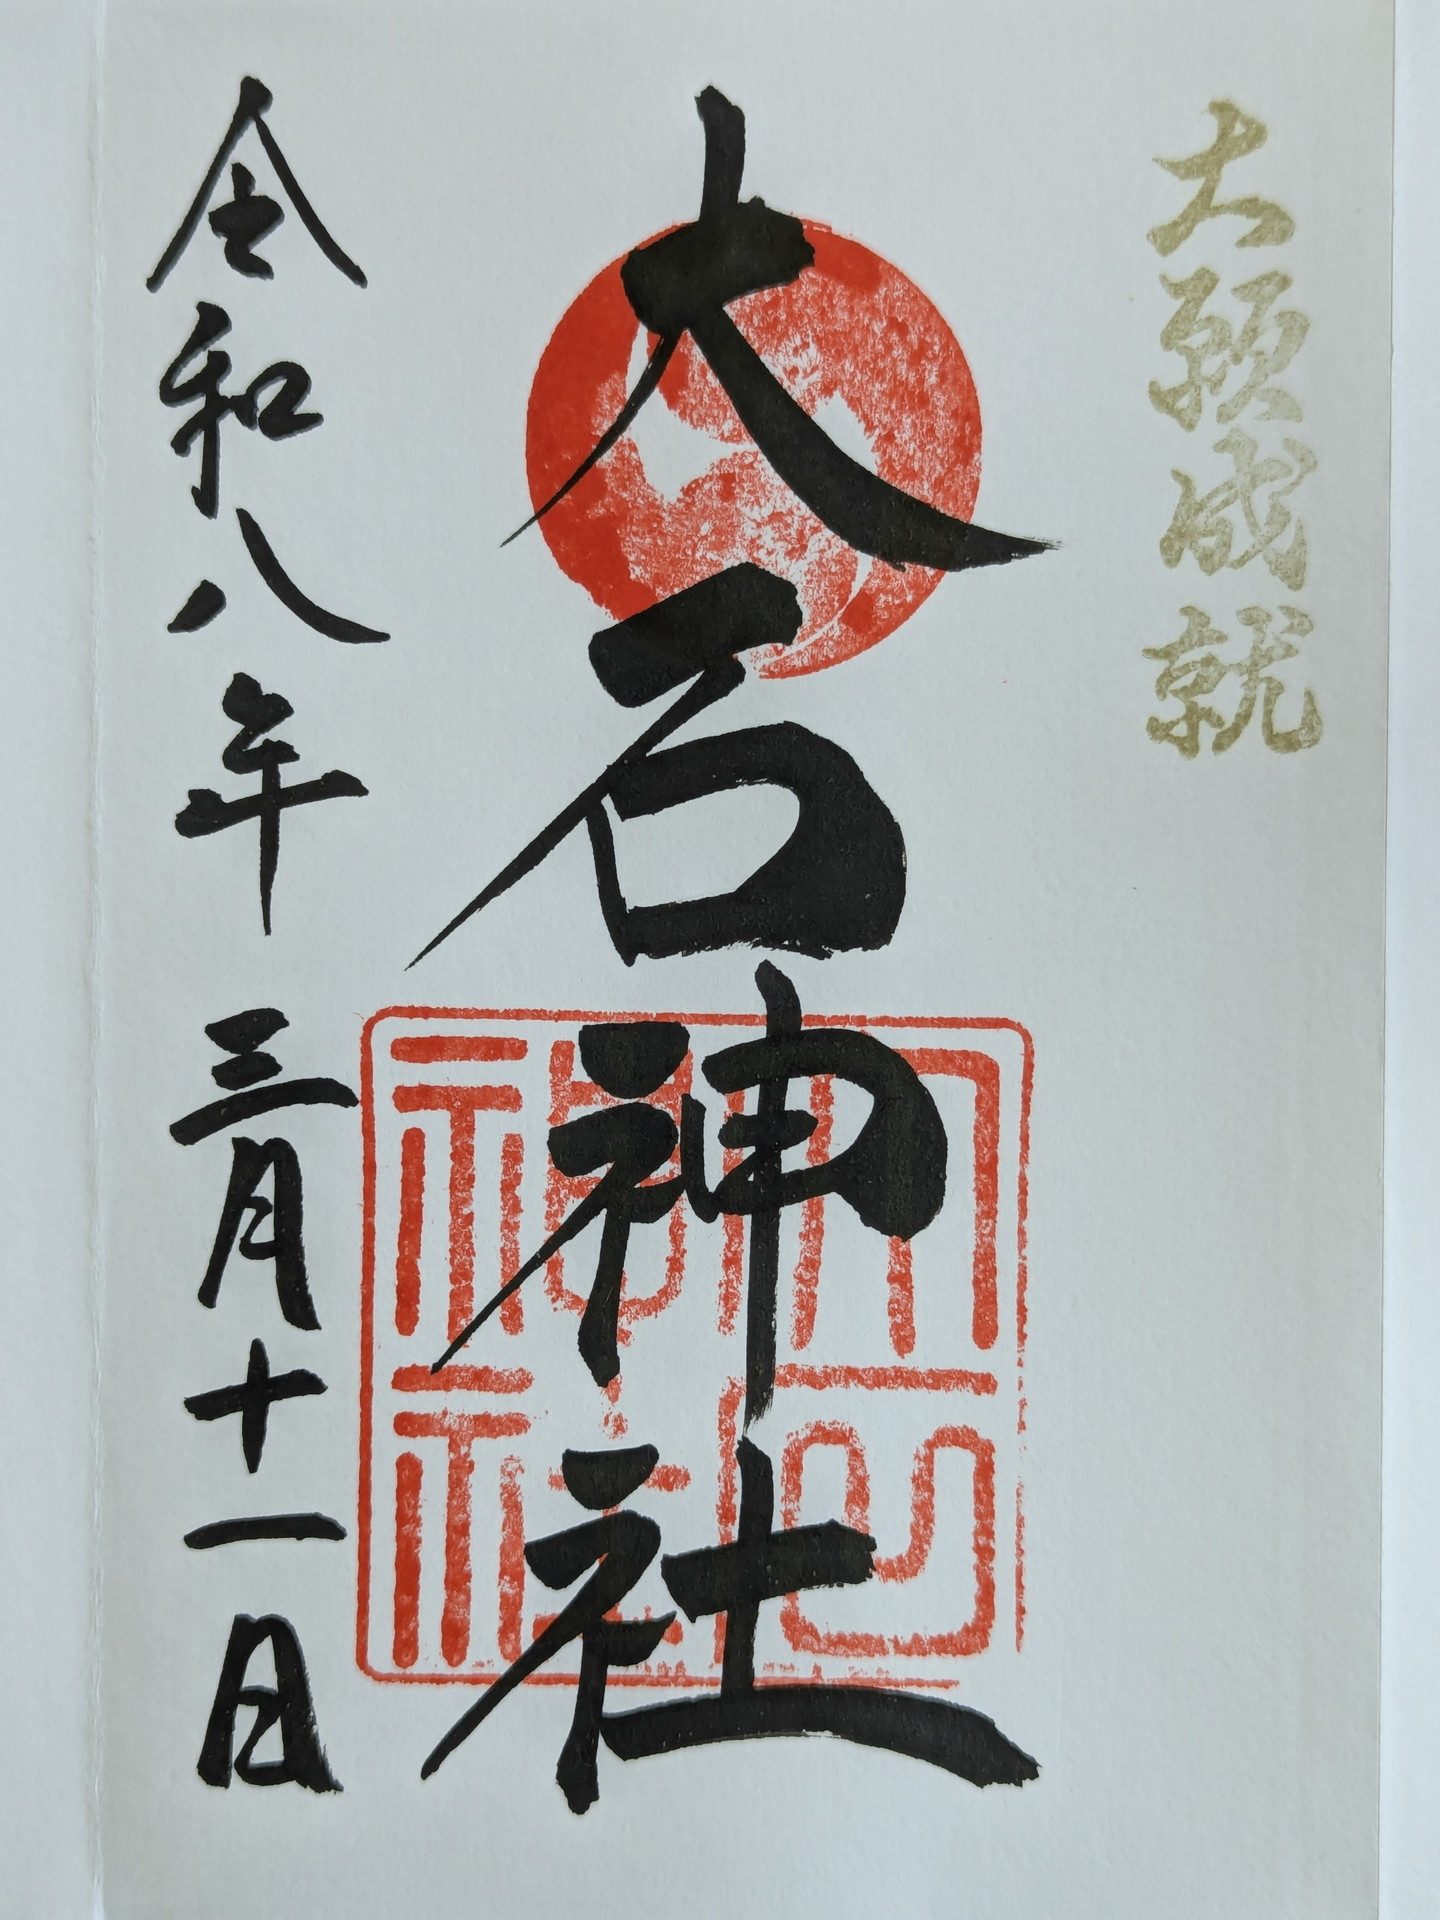 大願成就
大石神社
令和八年三月十一日
大石神社